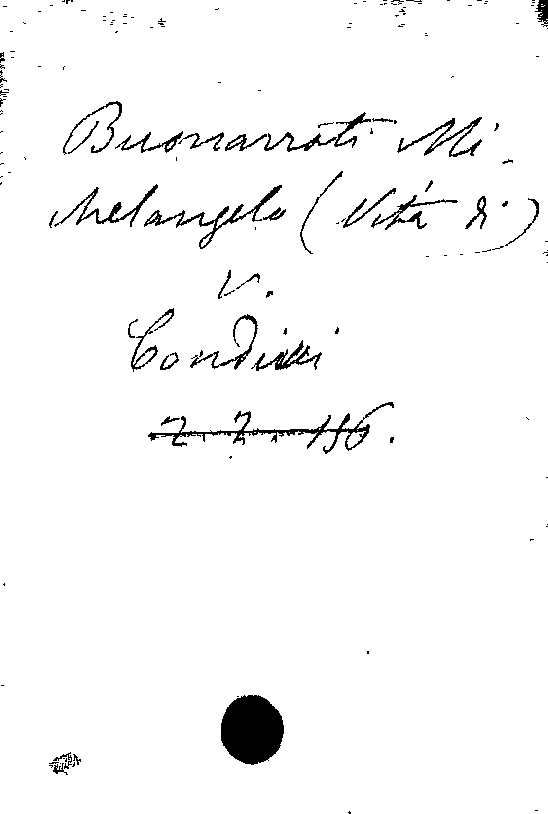 Buonarroti Mi-
chelangelo (Vitá di)
v.
Condivi
Z. Z. 156.